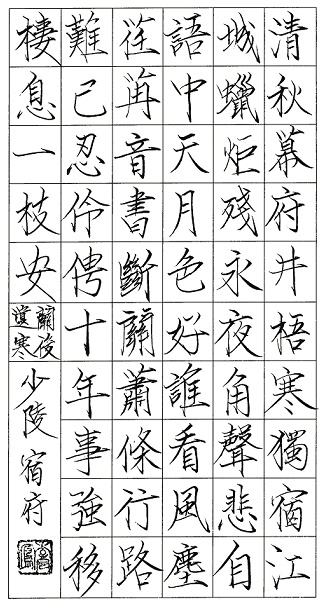 清秋幕府井梧寒獨宿江
城蠟炬殘永夜角聲悲自
語中天月色好誰看風塵
荏苒音書斷關蕭條行路
難已忍伶俜十年事強移
棲息一枝安
關後
遺塞
少陵宿府